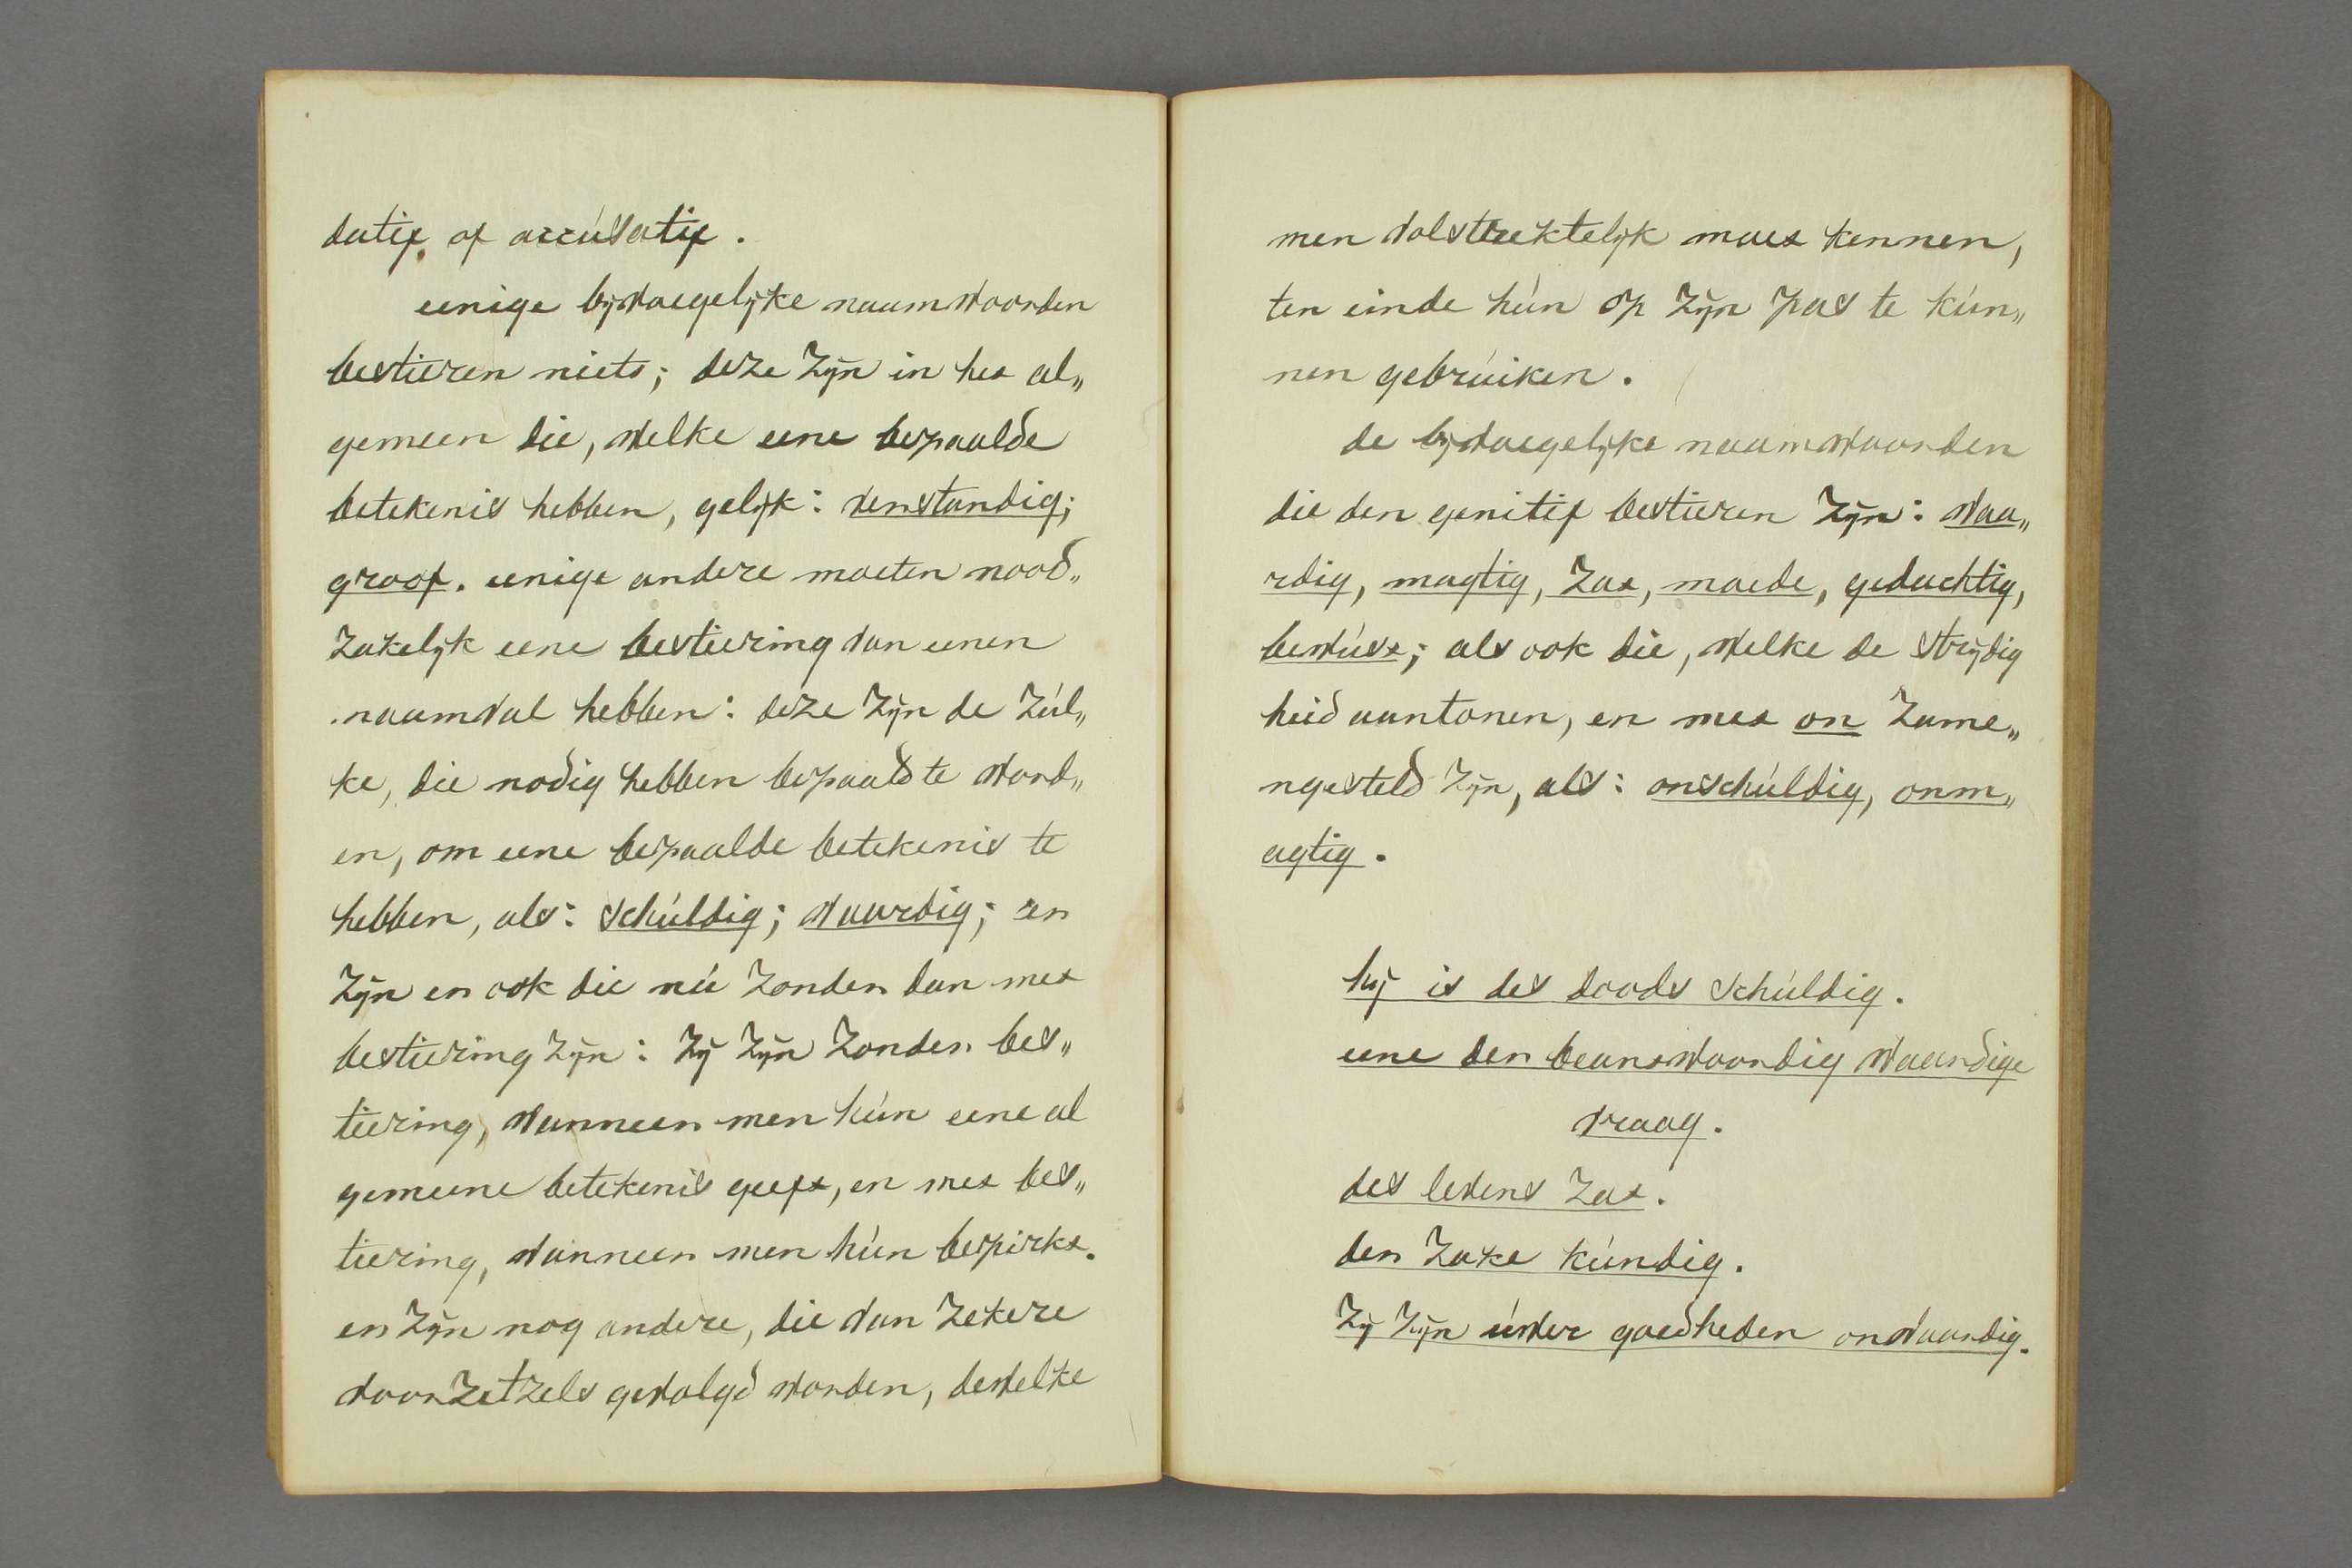 datif of accúsatif.
eenige bijvoegelijke naamwoorden
bestieren niets; deze zijn in het al„
gemeen die, welke eene bepaalde
betekenis hebben, gelijk: verstandig;
groot. eenige andere moeten nood„
zakelijk eene bestiering van eenen
naamval hebben: deze zijn de zúl„
ke, die nodig hebben bepaald te word„
en, om eene bepaalde betekenis te
hebben, als: schúldig; waardig; er
zijn er ook die nú zonder dan met
bestiering zijn: zij zijn zonder bes„
tiering, wanneer men hún eene al
gemeene betekenis geeft, en met bes„
tiering, wanneer men hún beperkt.
er zijn nog andere, die van zekere
voorzetzels gevolgd worden, dewelke
men volstrektelijk moet kennen,
ten einde hún op zijn pas te kún„
nen gebrúiken.
de bijvoegelijke naamwoorden
die den genitif bestieren zijn: waa„
rdig, magtig, zat, moede, gedachtig,
bewúst; als ook die, welke de strijdig
heid aantonen, en met on zame„
ngesteld zijn, als: onschúldig, onm„
agtig.
hij is des doods schúldig.
eene der beantwoording waardige
vraag.
des levens zat.
der zake kúndig.
zij zijn úwer goedheden onwaardig.